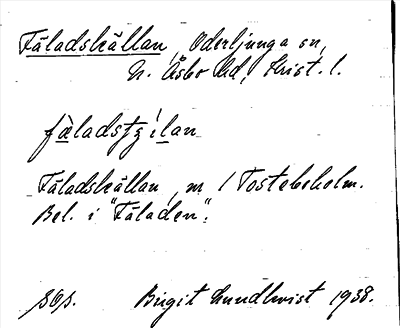 Fäladskällan, Oderljunga sn,
N. Åsbo hd, Krist. l.
Fäladskällan, m / Tostebeholm.
Bel. i "Fäladen".
Birgit Lundkvist 1938.